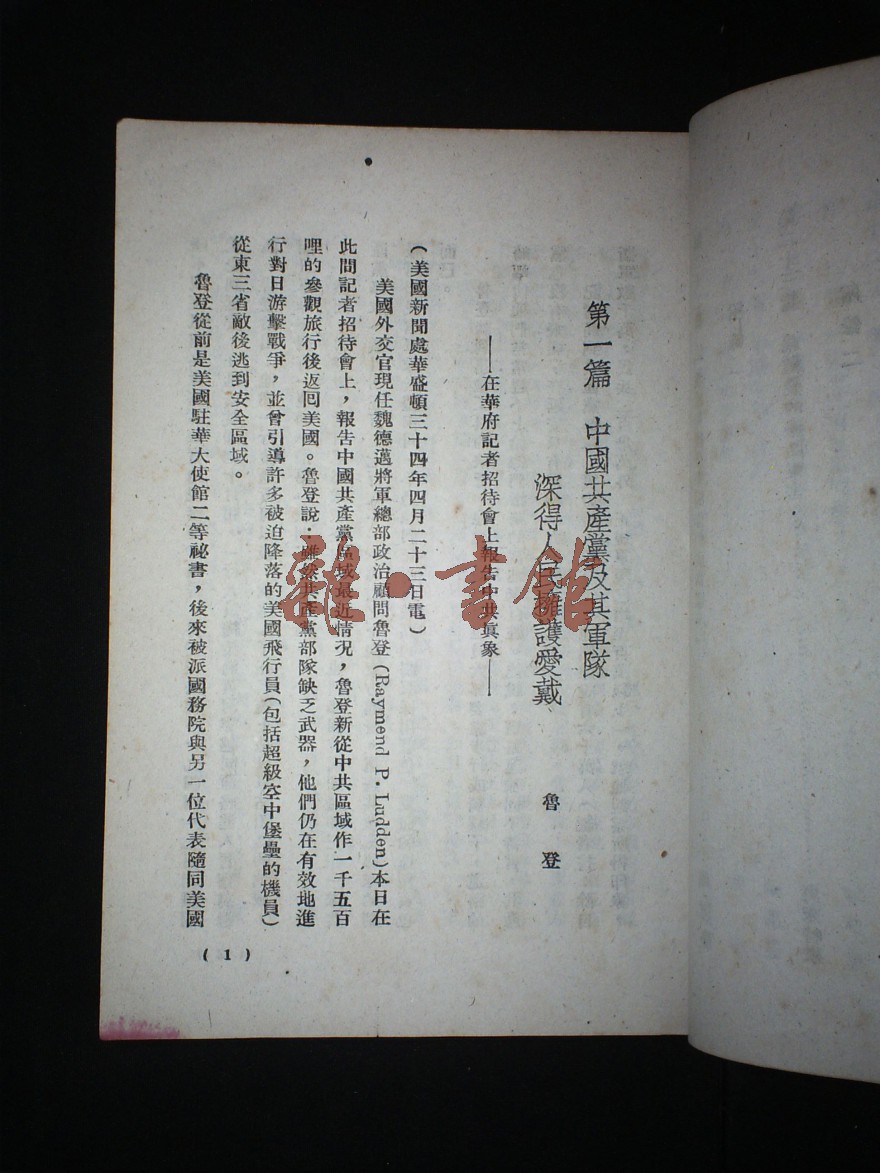 第一篇　中國共產黨及其軍隊
深得人民擁護愛戴
魯登
——在華府記者招待會上報告中共眞象——
(美國新聞處華盛頓三十四年四月二十三日電)
美國外交官現任魏德邁將軍總部政治顧問魯登(Raymend P. Ludden)本日在
此間記者招待會上，報告中國共產黨區域最近情況，魯登新從中共區域作一千五百
哩的參觀旅行後返囘美國。魯登說：雖然共產黨部隊缺乏武器，他們仍在有效地進
行對日游擊戰爭，並曾引導許多被迫降落的美國飛行員(包括超級空中堡壘的機員)
從東三省敵後逃到安全區域。
魯登從前是美國駐華大使館二等祕書，後來被派國務院與另一位代表隨同美國
(1)
雜·書館